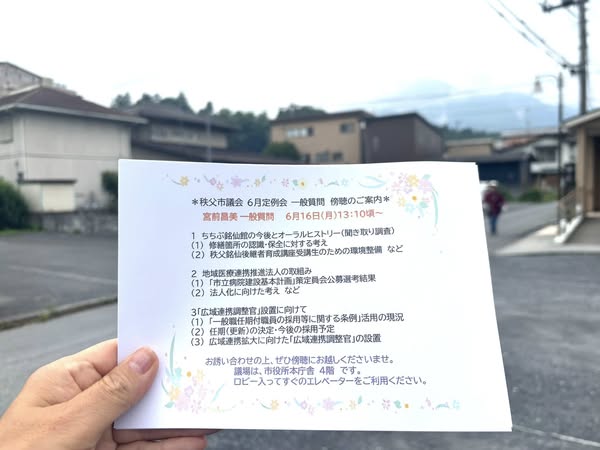 ＊秩父市議会 6月定例会 一般質問 傍聴のご案内＊
宮前昌美 一般質問 6月16日(月)13:10頃～
1 ちちぶ銘仙館の今後とオーラルヒストリー(聞き取り調査)
(1) 修繕箇所の認識・保全に対する考え
(2) 秩父銘仙後継者育成講座受講生のための環境整備 など
2 地域医療連携推進法人の取組み
(1) 「市立病院建設基本計画」策定員会公募選考結果
(2) 法人化に向けた考え など
3「広域連携調整官」設置に向けて
(1) 「一般職任期付職員の採用等に関する条例」活用の現況
(2) 任期(更新)の決定・今後の採用予定
(3) 広域連携拡大に向けた「広域連携調整官」の設置
お誘い合わせの上、ぜひ傍聴にお越しくださいませ。
議場は、市役所本庁舎 4階 です。
ロビー入ってすぐのエレベーターをご利用ください。